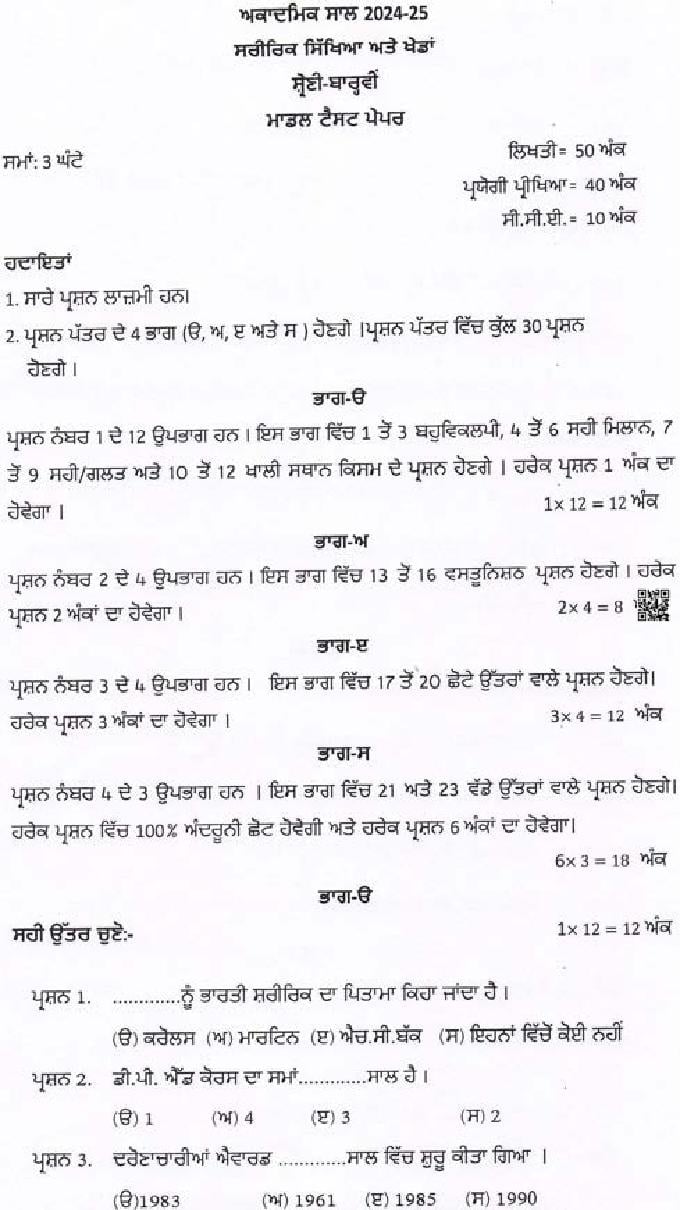 ਅਕਾਦਮਿਕ ਸਾਲ 2024-25
ਸਰੀਰਿਕ ਸਿੱਖਿਆ ਅਤੇ ਖੇਡਾਂ
ਸ਼੍ਰੇਣੀ-ਬਾਰ੍ਹਵੀਂ
ਮਾਡਲ ਟੈਸਟ ਪੇਪਰ
ਸਮਾਂ: 3 ਘੰਟੇ
ਲਿਖਤੀ= 50 ਅੰਕ
ਪ੍ਰਯੋਗੀ ਪ੍ਰੀਖਿਆ= 40 ਅੰਕ
ਸੀ.ਸੀ.ਈ.= 10 ਅੰਕ
ਹਦਾਇਤਾਂ
1. ਸਾਰੇ ਪ੍ਰਸ਼ਨ ਲਾਜ਼ਮੀ ਹਨ।
2. ਪ੍ਰਸ਼ਨ ਪੱਤਰ ਦੇ 4 ਭਾਗ (ੳ, ਅ, ੲ ਅਤੇ ਸ ) ਹੋਣਗੇ ।ਪ੍ਰਸ਼ਨ ਪੱਤਰ ਵਿੱਚ ਕੁੱਲ 30 ਪ੍ਰਸ਼ਨ
ਹੋਣਗੇ ।
ਭਾਗ-ੳ
ਪ੍ਰਸ਼ਨ ਨੰਬਰ 1 ਦੇ 12 ਉਪਭਾਗ ਹਨ । ਇਸ ਭਾਗ ਵਿੱਚ 1 ਤੋਂ 3 ਬਹੁਵਿਕਲਪੀ, 4 ਤੋਂ 6 ਸਹੀ ਮਿਲਾਨ, 7
ਤੋਂ 9 ਸਹੀ/ਗਲਤ ਅਤੇ 10 ਤੋਂ 12 ਖਾਲੀ ਸਥਾਨ ਕਿਸਮ ਦੇ ਪ੍ਰਸ਼ਨ ਹੋਣਗੇ । ਹਰੇਕ ਪ੍ਰਸ਼ਨ 1 ਅੰਕ ਦਾ
ਹੋਵੇਗਾ । 1x 12 = 12 ਅੰਕ
ਭਾਗ-ਅ
ਪ੍ਰਸ਼ਨ ਨੰਬਰ 2 ਦੇ 4 ਉਪਭਾਗ ਹਨ । ਇਸ ਭਾਗ ਵਿੱਚ 13 ਤੋਂ 16 ਵਸਤੂਨਿਸ਼ਠ ਪ੍ਰਸ਼ਨ ਹੋਣਗੇ । ਹਰੇਕ
ਪ੍ਰਸ਼ਨ 2 ਅੰਕਾਂ ਦਾ ਹੋਵੇਗਾ । 2x 4 = 8
ਭਾਗ-ੲ
ਪ੍ਰਸ਼ਨ ਨੰਬਰ 3 ਦੇ 4 ਉਪਭਾਗ ਹਨ । ਇਸ ਭਾਗ ਵਿੱਚ 17 ਤੋਂ 20 ਛੋਟੇ ਉੱਤਰਾਂ ਵਾਲੇ ਪ੍ਰਸ਼ਨ ਹੋਣਗੇ।
ਹਰੇਕ ਪ੍ਰਸ਼ਨ 3 ਅੰਕਾਂ ਦਾ ਹੋਵੇਗਾ । 3x 4 = 12 ਅੰਕ
ਭਾਗ-ਸ
ਪ੍ਰਸ਼ਨ ਨੰਬਰ 4 ਦੇ 3 ਉਪਭਾਗ ਹਨ । ਇਸ ਭਾਗ ਵਿੱਚ 21 ਅਤੇ 23 ਵੱਡੇ ਉੱਤਰਾਂ ਵਾਲੇ ਪ੍ਰਸ਼ਨ ਹੋਣਗੇ।
ਹਰੇਕ ਪ੍ਰਸ਼ਨ ਵਿੱਚ 100% ਅੰਦਰੂਨੀ ਛੋਟ ਹੋਵੇਗੀ ਅਤੇ ਹਰੇਕ ਪ੍ਰਸ਼ਨ 6 ਅੰਕਾਂ ਦਾ ਹੋਵੇਗਾ।
6x 3 = 18 ਅੰਕ
ਭਾਗ-ੳ
ਸਹੀ ਉੱਤਰ ਚੁਣੋ:- 1x 12 = 12 ਅੰਕ
ਪ੍ਰਸ਼ਨ 1. .............ਨੂੰ ਭਾਰਤੀ ਸ਼ਰੀਰਿਕ ਦਾ ਪਿਤਾਮਾ ਕਿਹਾ ਜਾਂਦਾ ਹੈ ।
(ੳ) ਕਰੋਲਸ (ਅ) ਮਾਰਟਿਨ (ੲ) ਐਚ.ਸੀ.ਬੱਕ (ਸ) ਇਹਨਾਂ ਵਿੱਚੋਂ ਕੋਈ ਨਹੀਂ
ਪ੍ਰਸ਼ਨ 2. ਡੀ.ਪੀ. ਐੱਡ ਕੋਰਸ ਦਾ ਸਮਾਂ.............ਸਾਲ ਹੈ ।
(ੳ) 1 (ਅ) 4 (ੲ) 3 (ਸ) 2
ਪ੍ਰਸ਼ਨ 3. ਦਰੋਣਾਚਾਰੀਆਂ ਐਵਾਰਡ .............ਸਾਲ ਵਿੱਚ ਸ਼ੁਰੂ ਕੀਤਾ ਗਿਆ ।
(ੳ)1983 (ਅ) 1961 (ੲ) 1985 (ਸ) 1990